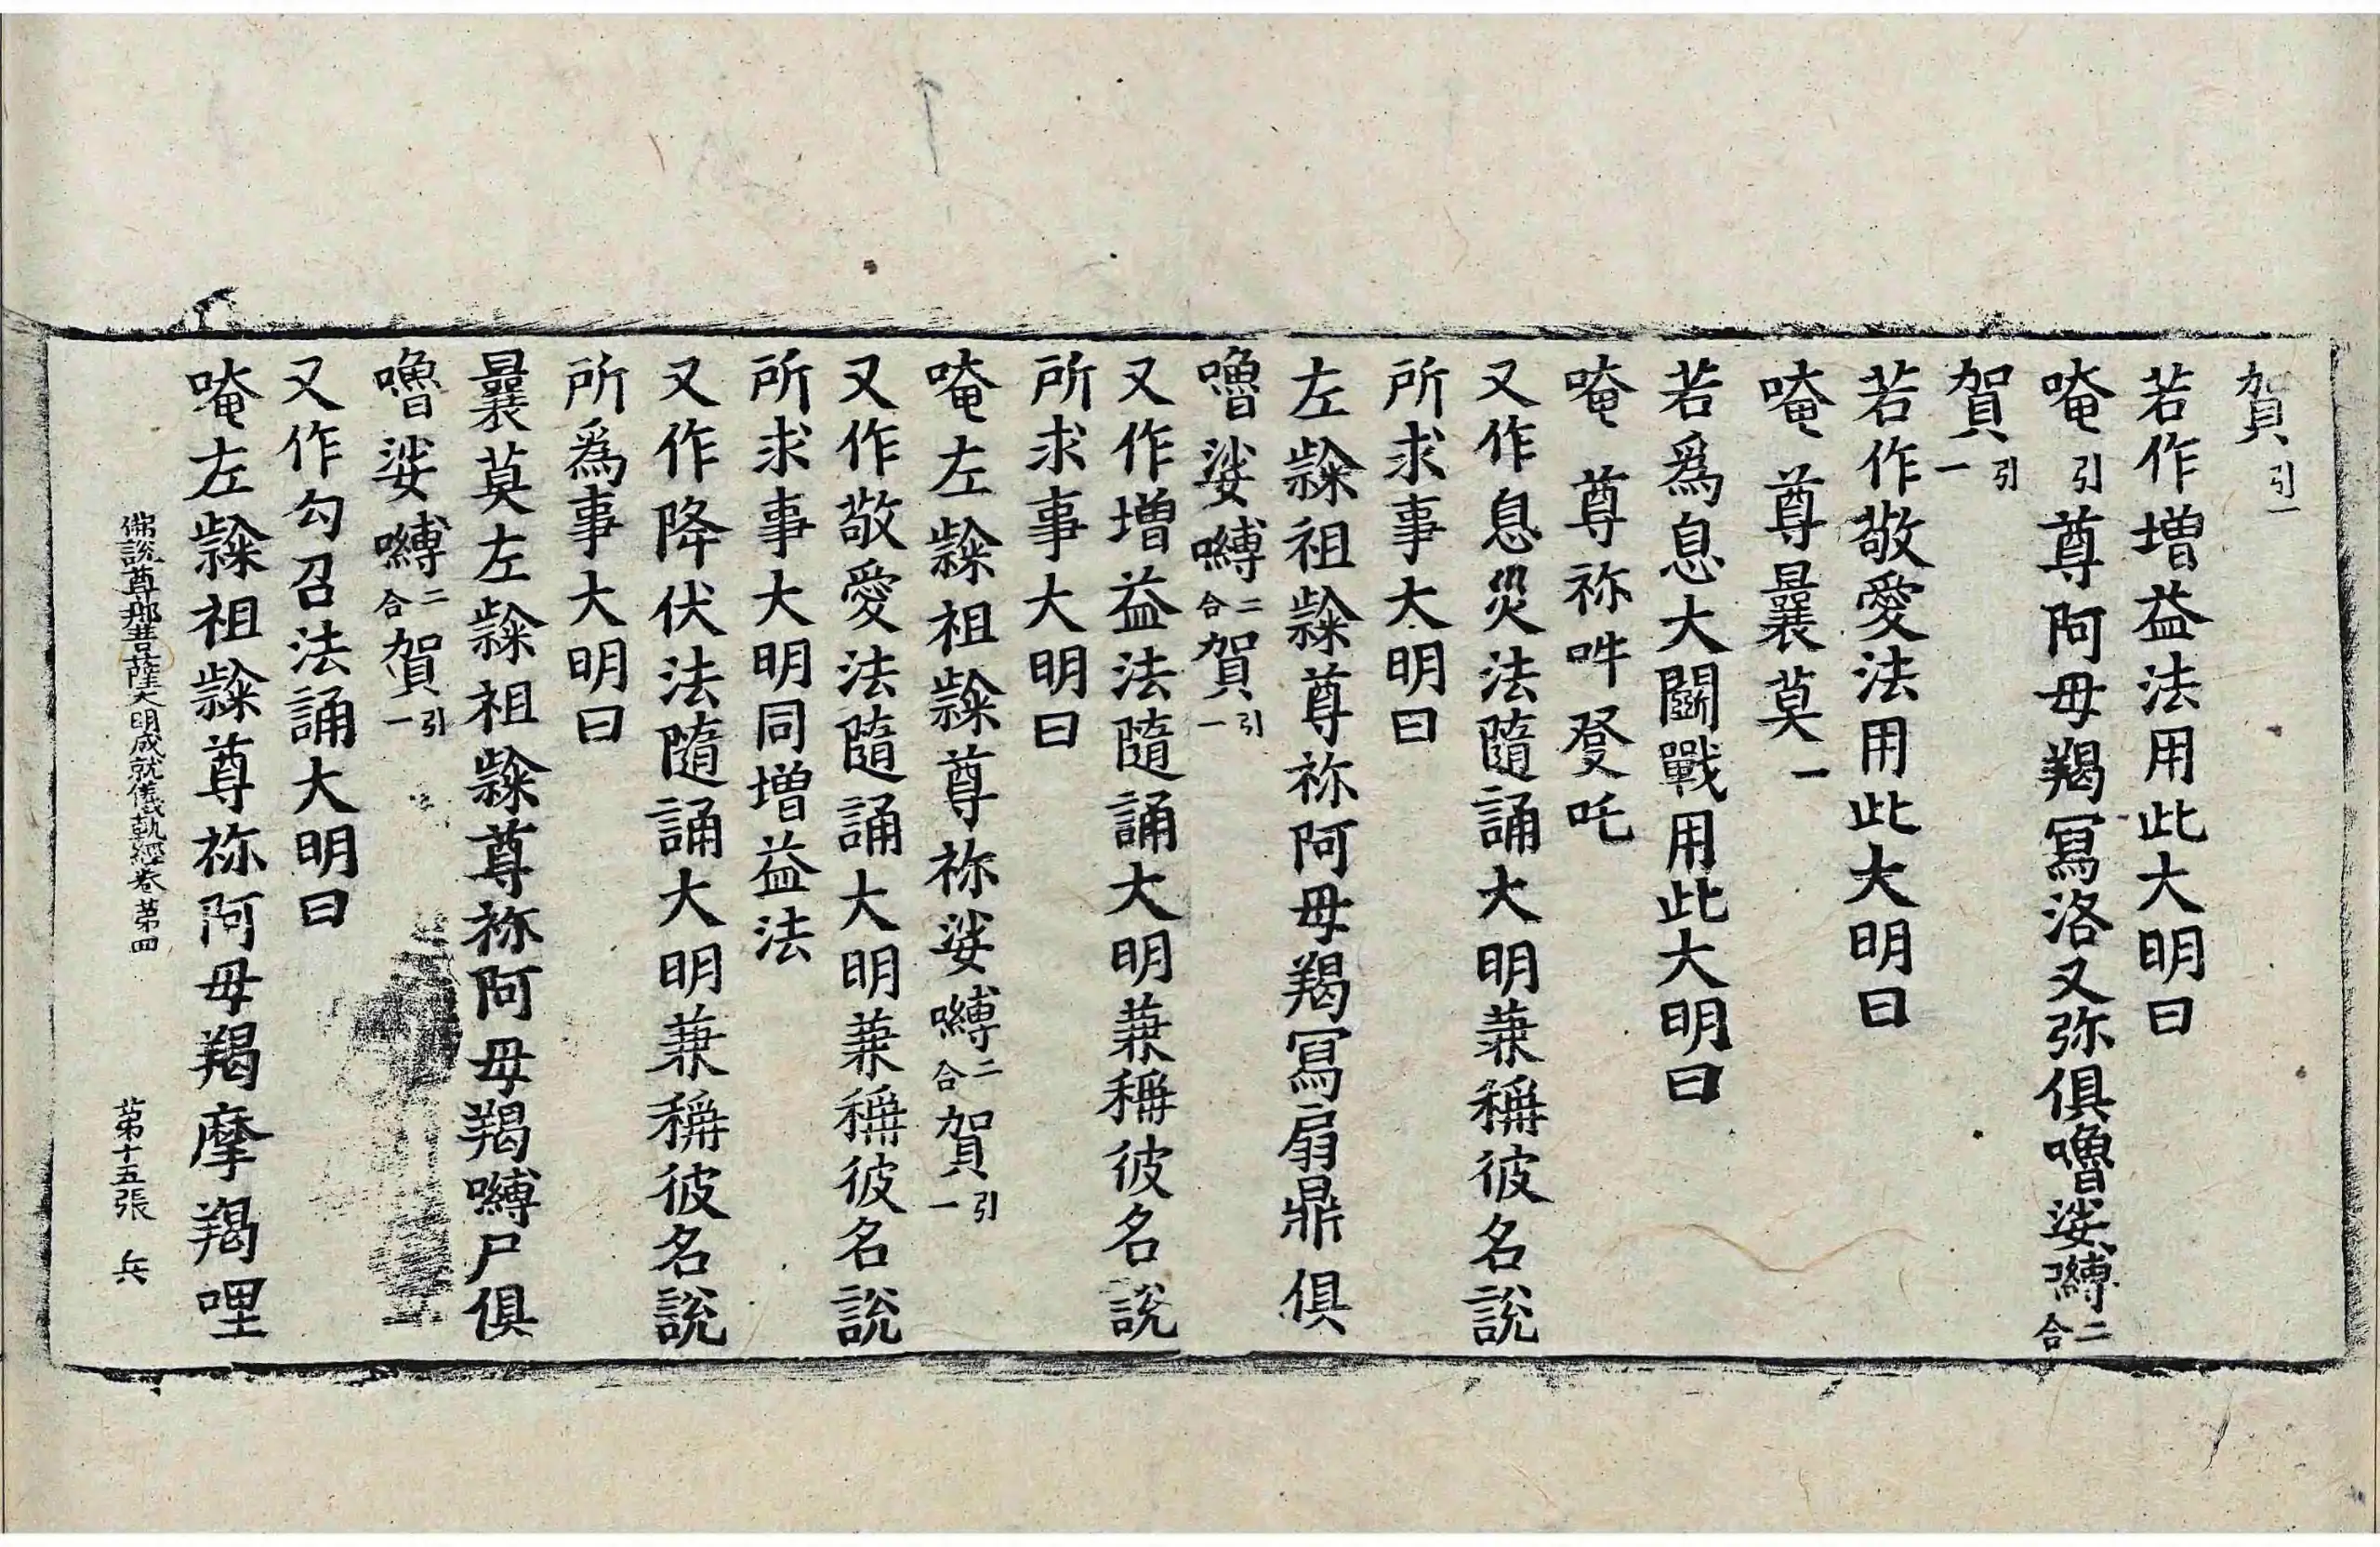 賀引一
若作增益法用此大明曰
唵引尊阿毋羯寫洛叉弥俱嚕娑嚩二合
賀引一
若作敬愛法用此大明曰
唵尊曩莫一
若爲息大鬬戰用此大明曰
唵尊祢吽發吒
又作息災法隨誦大明兼稱彼名說
所求事大明曰
左隸祖隸尊祢阿毋羯寫扇鼎俱
嚕娑嚩二合賀引一
又作增益法隨誦大明兼稱彼名說
所求事大明曰
唵左隸祖隸尊祢娑嚩二合賀引一
又作敬愛法隨誦大明兼稱彼名說
所求事大明同增益法
又作降伏法隨誦大明兼稱彼名說
所爲事大明曰
曩莫左隸祖隸尊祢阿毋羯嚩尸俱
嚕娑嚩二合賀引一
又作勾召法誦大明曰
唵左隸祖隸尊祢阿毋羯摩羯哩
佛說尊那菩薩大明成就儀軌經卷第四 第十五張 兵